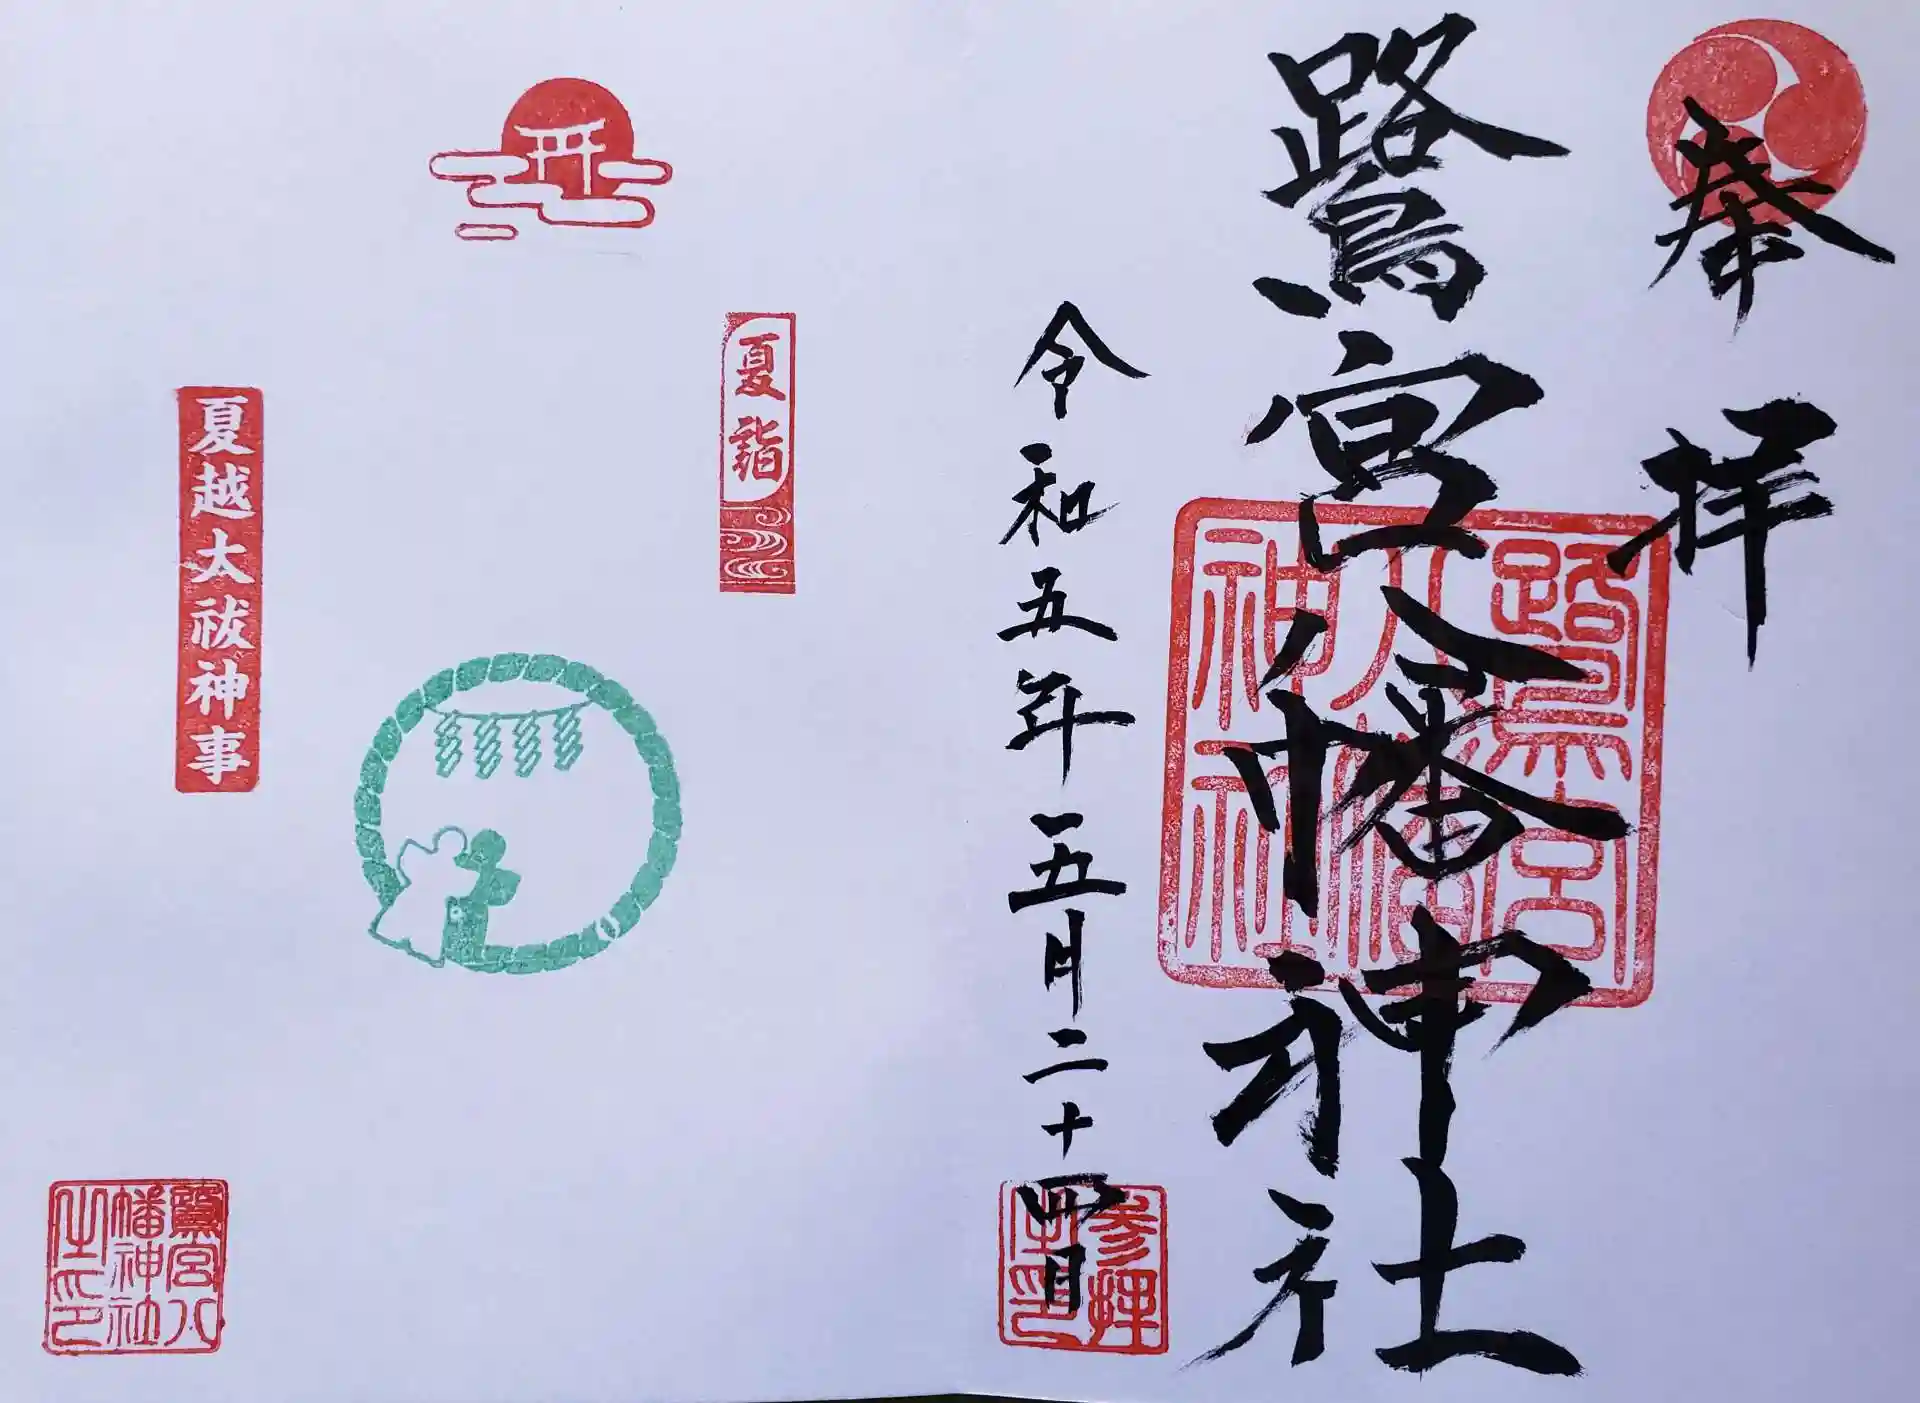 奉拝
鷺宮八幡神社
鷺宮
八幡
神社
令和五年五月二十四日
参拝
之印
夏詣
夏越大祓神事
鷺宮八
幡神社
之印